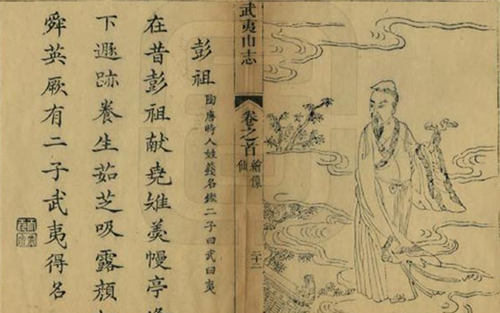 武夷山志
卷之首
繪像
仙
彭祖
陶唐時人姓籛名鏗二子曰武曰夷
在昔彭祖献堯雉羹幔亭
下遯跡養生茹芝吸露顏
舜英厥有二子武夷得名